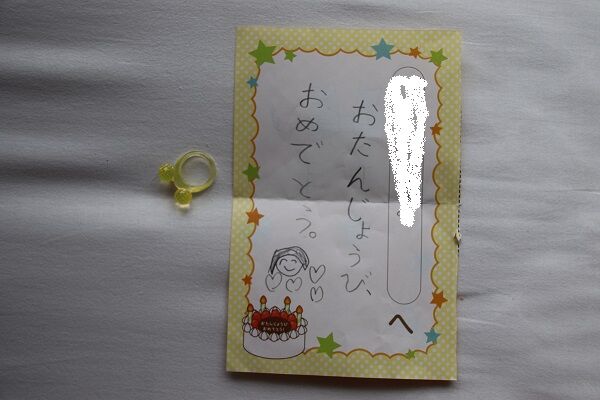 へ
おたんじょうび、
おめでとう。
おたんじょうび
おめでとう!